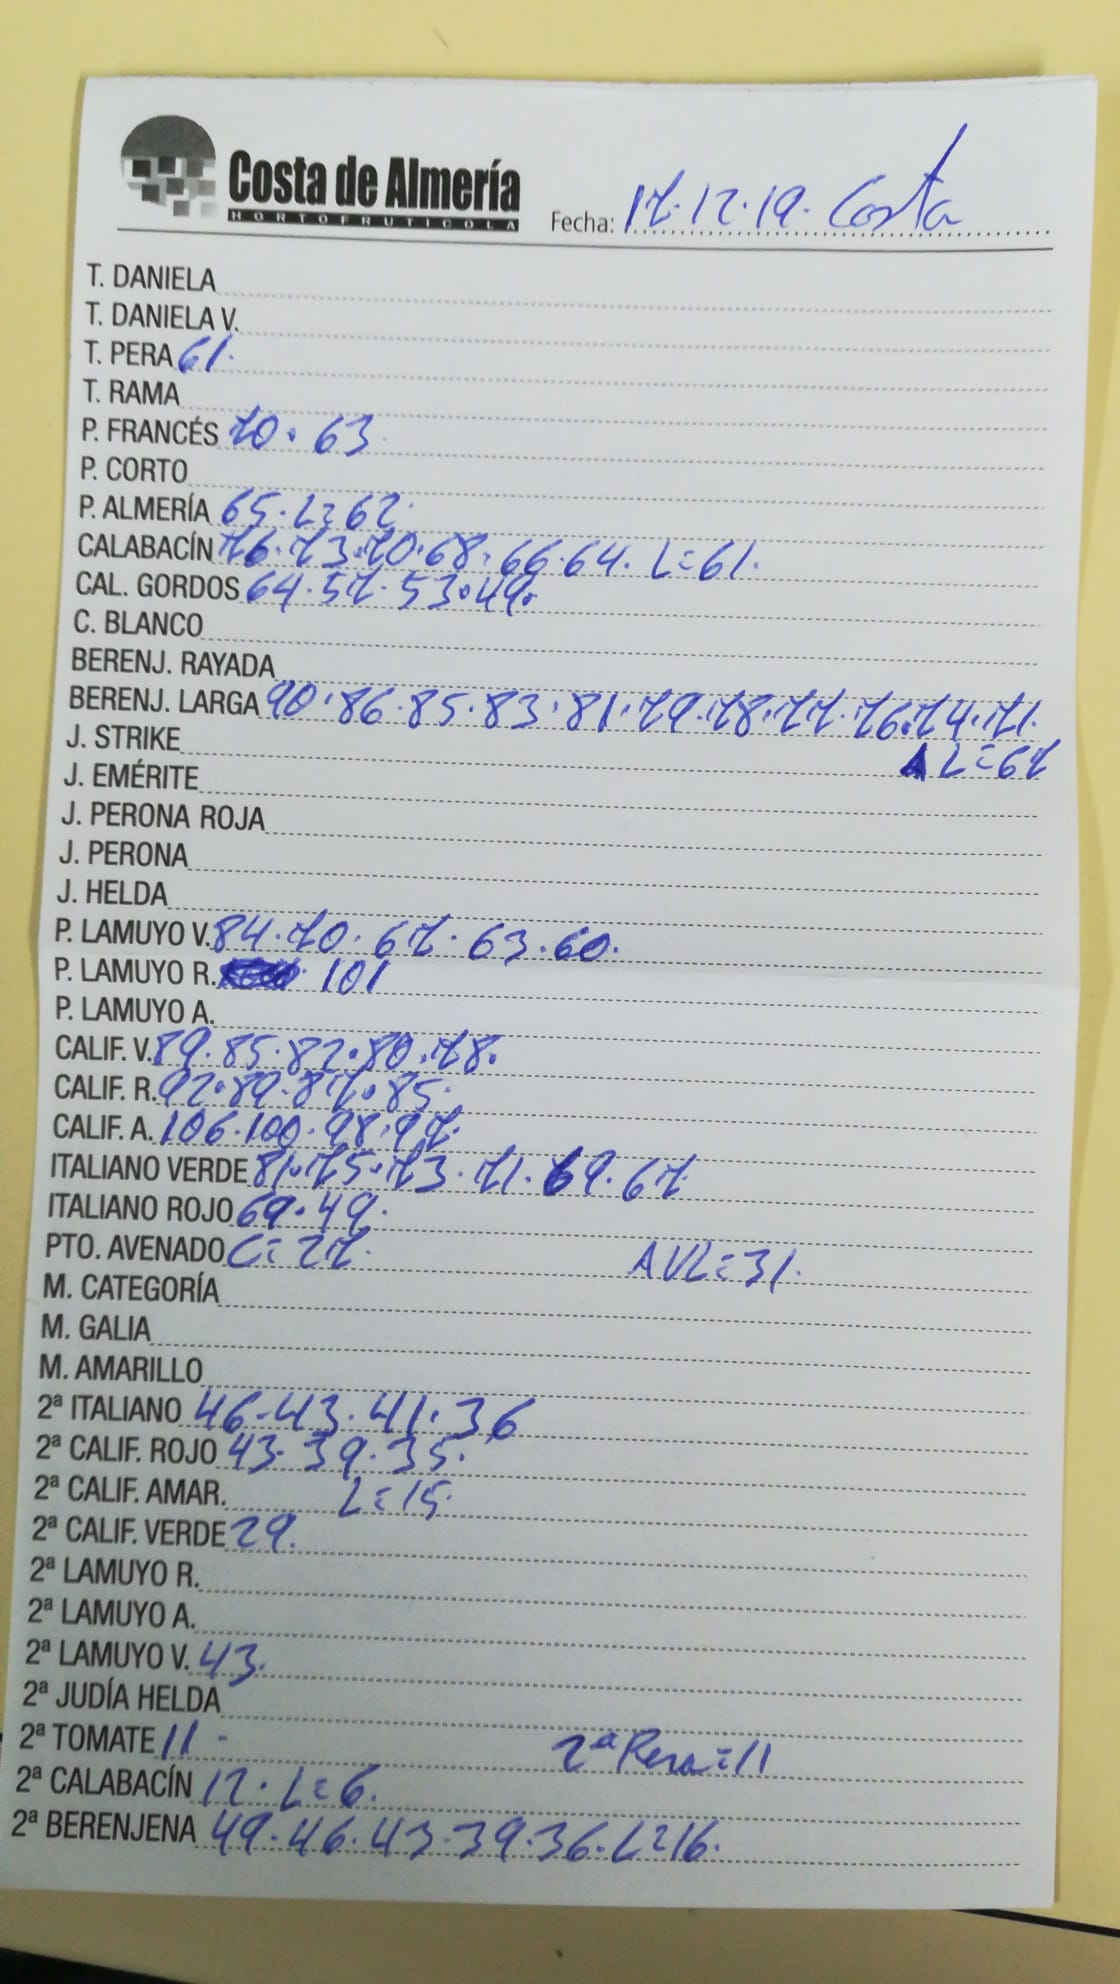 Costa de Almería
HORTOFRUTICOLA
Fecha: 17.12.19. Costa
T. DANIELA
T. DANIELA V.
T. PERA 61.
T. RAMA
P. FRANCÉS 70. 63.
P. CORTO
P. ALMERÍA 65. L=62.
CALABACÍN 76.73.70.68.66.64. L=61.
CAL. GORDOS 64.57.53.49.
C. BLANCO
BERENJ. RAYADA
BERENJ. LARGA 90.86.85.83.81.79.78.77.76.74.71.
J. STRIKE L=67
J. EMÉRITE
J. PERONA ROJA
J. PERONA
J. HELDA
P. LAMUYO V. 84.70.67.63.60.
P. LAMUYO R. 101
P. LAMUYO A.
CALIF. V. 89.85.82.80.78.
CALIF. R. 92.89.87.85.
CALIF. A. 106.100.98.97.
ITALIANO VERDE 81.75.73.71.69.67.
ITALIANO ROJO 69.49.
PTO. AVENADO C=27. AVL=31.
M. CATEGORÍA
M. GALIA
M. AMARILLO
2ª ITALIANO 46-43.41.36
2ª CALIF. ROJO 43.39.35.
2ª CALIF. AMAR. L=15.
2ª CALIF. VERDE 29.
2ª LAMUYO R.
2ª LAMUYO A.
2ª LAMUYO V. 43.
2ª JUDÍA HELDA
2ª TOMATE 11- 2ª Pera=11
2ª CALABACÍN 12. L=6.
2ª BERENJENA 49.46.43.39.36. L=16.